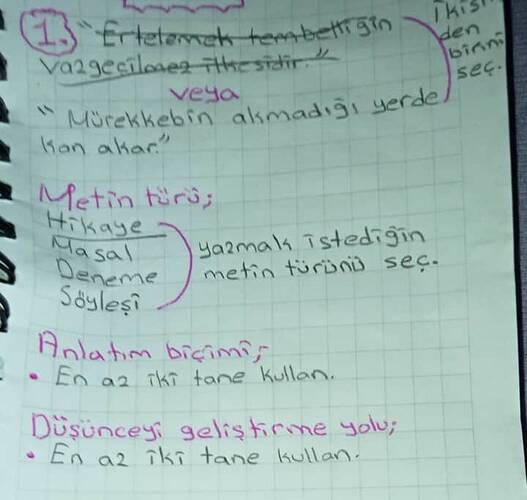 1. "Ertelemek tembelliğin
vazgeçilmez ilkesidir."
İkisi
den
birini
seç.
veya
"Mürekkebin akmadığı yerde
kan akar."
Metin türü;
Hikaye
Masal
Deneme
Söyleşi
yazmak istediğin
metin türünü seç.
Anlatım biçimi;
• En az iki tane kullan.
Düşünceyi geliştirme yolu;
• En az iki tane kullan.